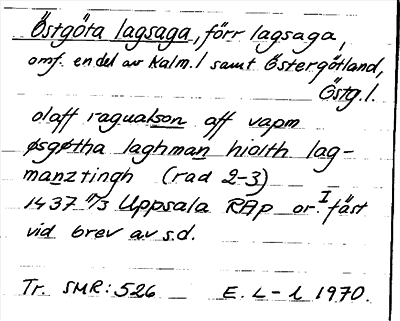 Östgöta lagsaga, förr lagsaga,
omf. en del av Kalm. l samt Östergötland,
Östg. l.
olaff ragualson aff vapm
øsgøtha laghman hiolth lag-
manztingh (rad 2-3)
1437 17/3 Uppsala RAp or. I fäst
vid brev av s.d.
Tr. SMR: 526 E. L-l 1970.